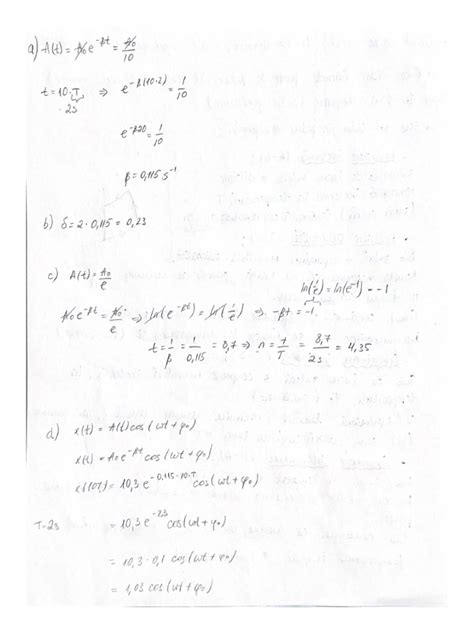 a) A(t) = A₀ e^{-βt} = A₀/10
t = 10·T ⇒ e^{-β(10·2)} = 1/10
2s
e^{-β20} = 1/10
β = 0,115 s⁻¹
b) δ = 2 · 0,115 = 0,23
c) A(t) = A₀/e
ln(1/e) = ln(e⁻¹) = -1
A₀ e^{-βt} = A₀/e ⇒ ln(e^{-βt}) = ln(1/e) ⇒ -βt = -1
t = 1/β = 1/0,115 = 8,7 ⇒ n = t/T = 8,7/2s = 4,35
d) x(t) = A(t) cos(ωt + φ₀)
x(t) = A₀ e^{-βt} cos(ωt + φ₀)
x(10T) = 10,3 e^{-0,115·10·T} cos(ωt + φ₀)
T=2s = 10,3 e^{-2,3} cos(ωt + φ₀)
= 10,3 · 0,1 cos(ωt + φ₀)
= 1,03 cos(ωt + φ₀)